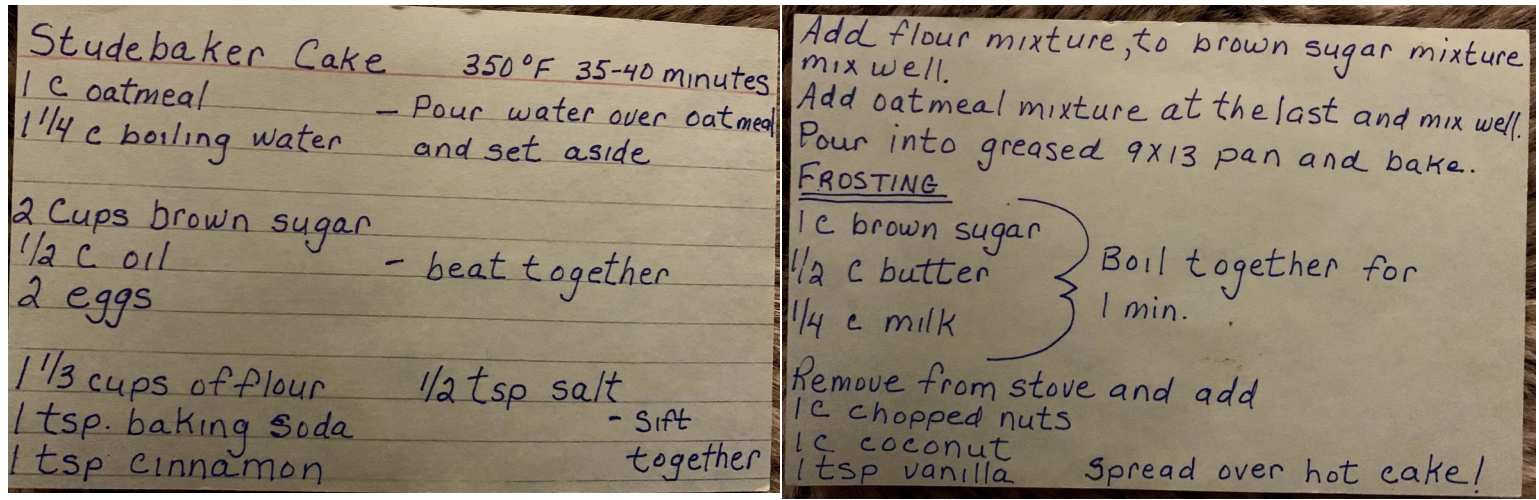 Studebaker Cake 350°F 35-40 minutes
1 c oatmeal
- Pour water over oatmeal
1 1/4 c boiling water
and set aside
2 Cups brown sugar
1/2 c oil
- beat together
2 eggs
1 1/3 cups of flour 1/2 tsp salt
1 tsp. baking soda - Sift
1 tsp cinnamon together
Add flour mixture, to brown sugar mixture
mix well.
Add oatmeal mixture at the last and mix well.
Pour into greased 9x13 pan and bake.
FROSTING
1 c brown sugar
1/2 c butter
1/4 c milk
Boil together for
1 min.
Remove from stove and add
1c chopped nuts
1c coconut
1 tsp vanilla Spread over hot cake!